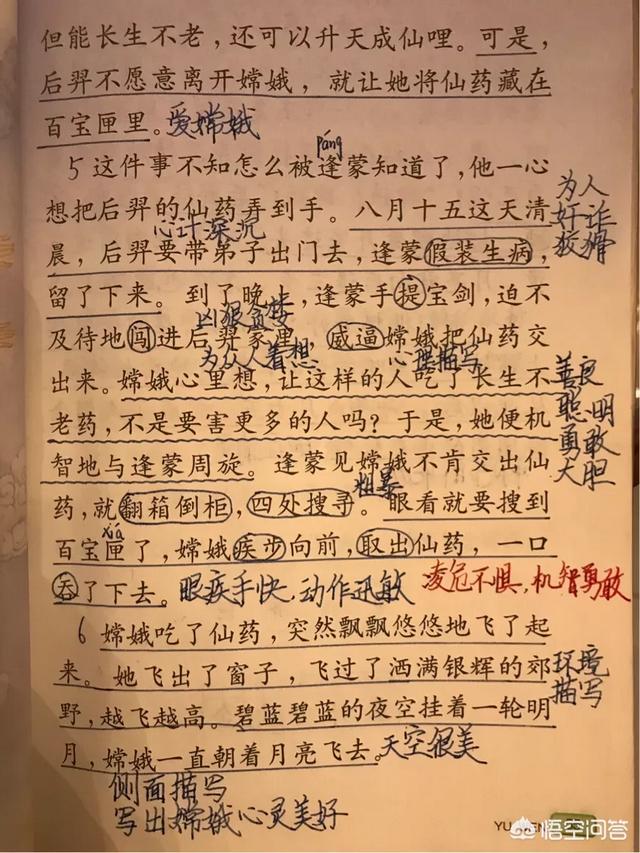 但能长生不老，还可以升天成仙哩。可是，
后羿不愿意离开嫦娥，就让她将仙药藏在
百宝匣里。爱嫦娥
páng
5 这件事不知怎么被逢蒙知道了，他一心
为人
奸诈
狡猾
想把后羿的仙药弄到手。八月十五这天清
心计深沉
晨，后羿要带弟子出门去，逢蒙假装生病，
留了下来。到了晚上，逢蒙手提宝剑，迫不
凶狠贪婪
及待地闯进后羿家里，威逼嫦娥把仙药交
为众人着想 心理描写
出来。嫦娥心里想，让这样的人吃了长生不
善良
聪明
勇敢
大胆
老药，不是要害更多的人吗？于是，她便机
智地与逢蒙周旋。逢蒙见嫦娥不肯交出仙
粗暴
药，就翻箱倒柜，四处搜寻。眼看就要搜到
xiá
百宝匣了，嫦娥疾步向前，取出仙药，一口
吞了下去。眼疾手快，动作迅敏 凌危不惧，机智勇敢
6 嫦娥吃了仙药，突然飘飘悠悠地飞了起
来。她飞出了窗子，飞过了洒满银辉的郊
环境
描写
野，越飞越高。碧蓝碧蓝的夜空挂着一轮明
月，嫦娥一直朝着月亮飞去。天空很美
侧面描写
写出嫦娥心灵美好
悟空问答